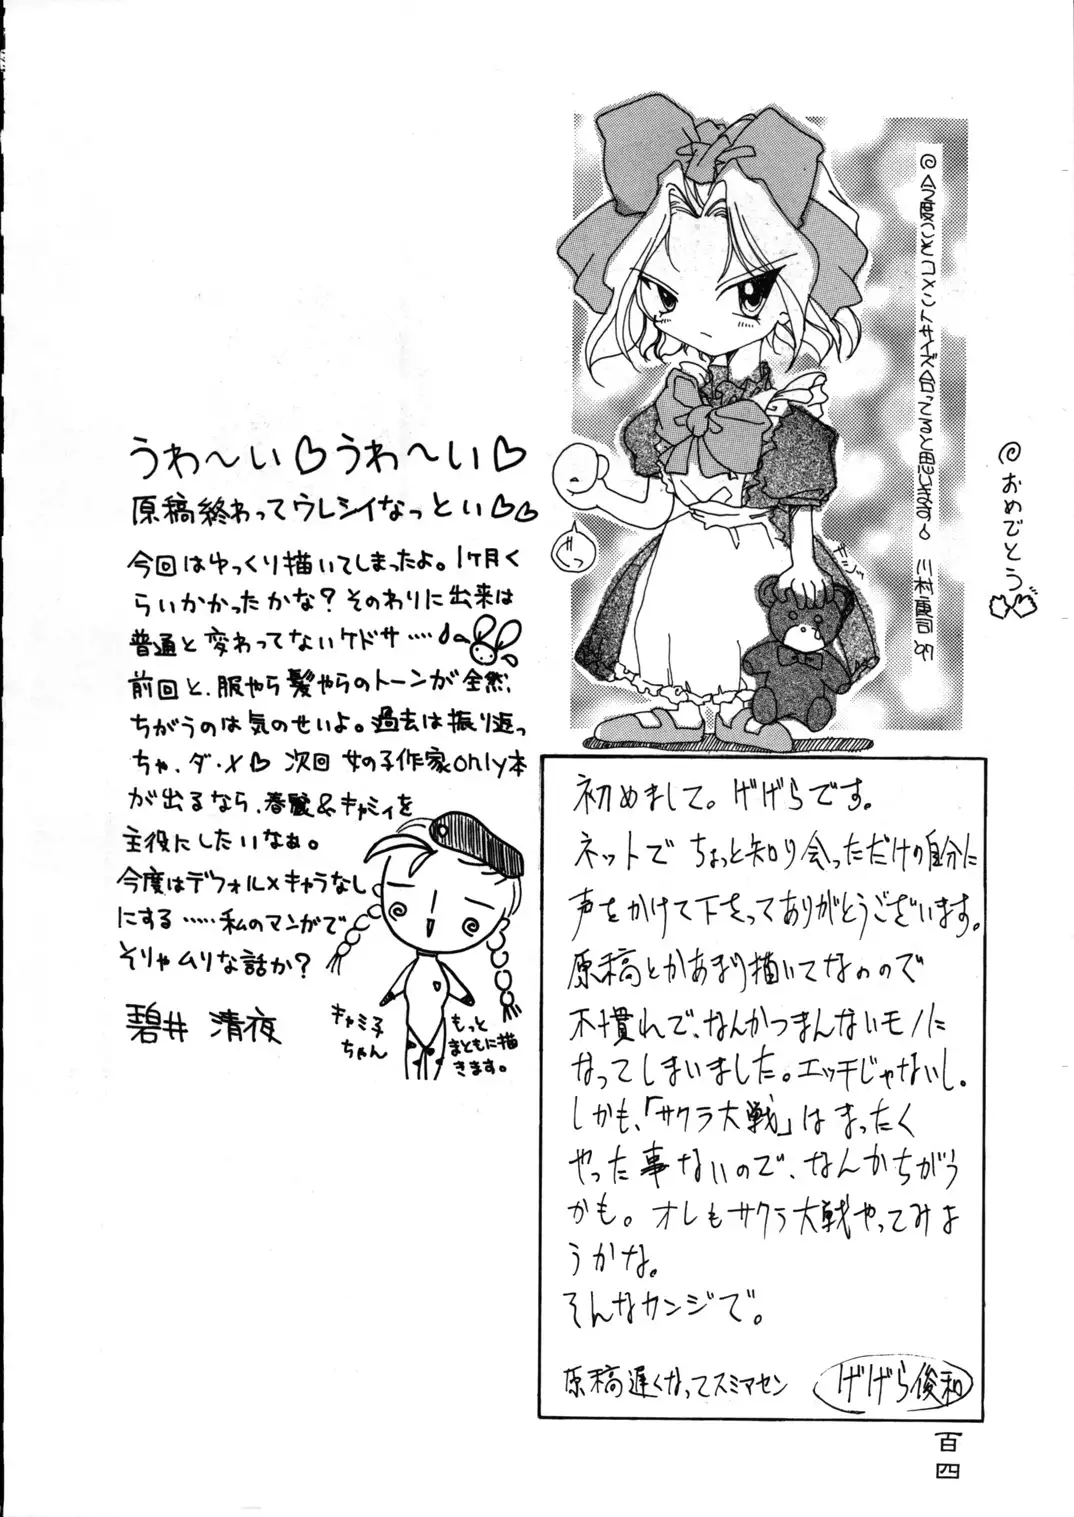 @今度こそコメントサイズ合ってると思います。 川村 司 97
@おめでとう
ギュッ
うわ〜い♡うわ〜い♡
原稿終わってウレシイなっとい♡♡
今回はゆっくり描いてしまったよ。1ヶ月く
らいかかったかな?そのわりに出来は
普通と変わってないケドサ‥‥
前回と、服やら髪やらのトーンが全然、
ちがうのは気のせいよ。過去は振り返っ
ちゃ、ダ・メ♡ 次回 女の子作家only本
が出るなら、春麗&キャミィを
主役にしたいなぁ。
今度はデフォルメキャラなし
にする……私のマンガで
そりゃムリな話か?
碧井 清夜
キャミ子
ちゃん
もっと
まともに描
きます。
初めまして。げげらです。
ネットで ちょっと知り会っただけの自分に
声をかけて下さってありがとうございます。
原稿とかあまり描いてなのので
不慣れで、なんかつまんないモノに
なってしまいました。エッチじゃないし。
しかも、「サクラ大戦」はまったく
やった事ないので、なんかちがう
かも。オレもサクラ大戦やってみよ
うかな。
そんなカンジで。
原稿遅くなってスミマセン
げげら俊和
百四